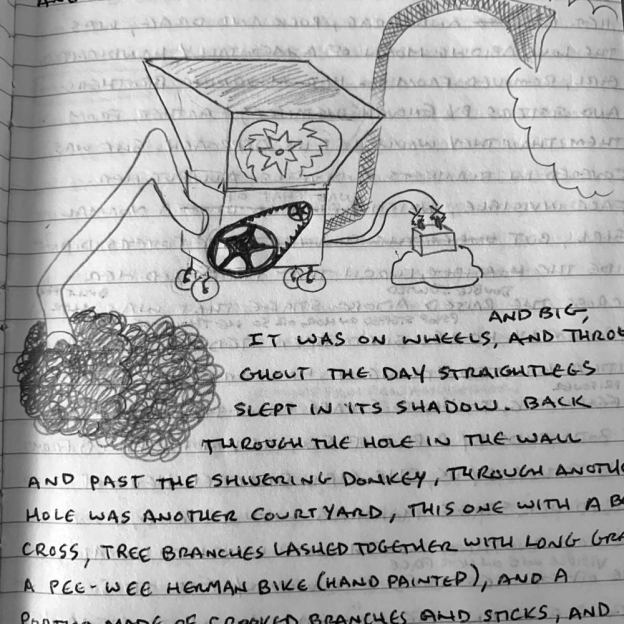 AND BIG,
IT WAS ON WHEELS, AND THROU
GHOUT THE DAY STRAIGHTLEGS
SLEPT IN ITS SHADOW. BACK
THROUGH THE HOLE IN THE WALL
AND PAST THE SHIVERING DONKEY, THROUGH ANOTHE
HOLE WAS ANOTHER COURTYARD, THIS ONE WITH A B
CROSS, TREE BRANCHES LASHED TOGETHER WITH LONG GRA
A PEE-WEE HERMAN BIKE (HAND PAINTED), AND A
MADE OF CROOKED BRANCHES AND STICKS, AND